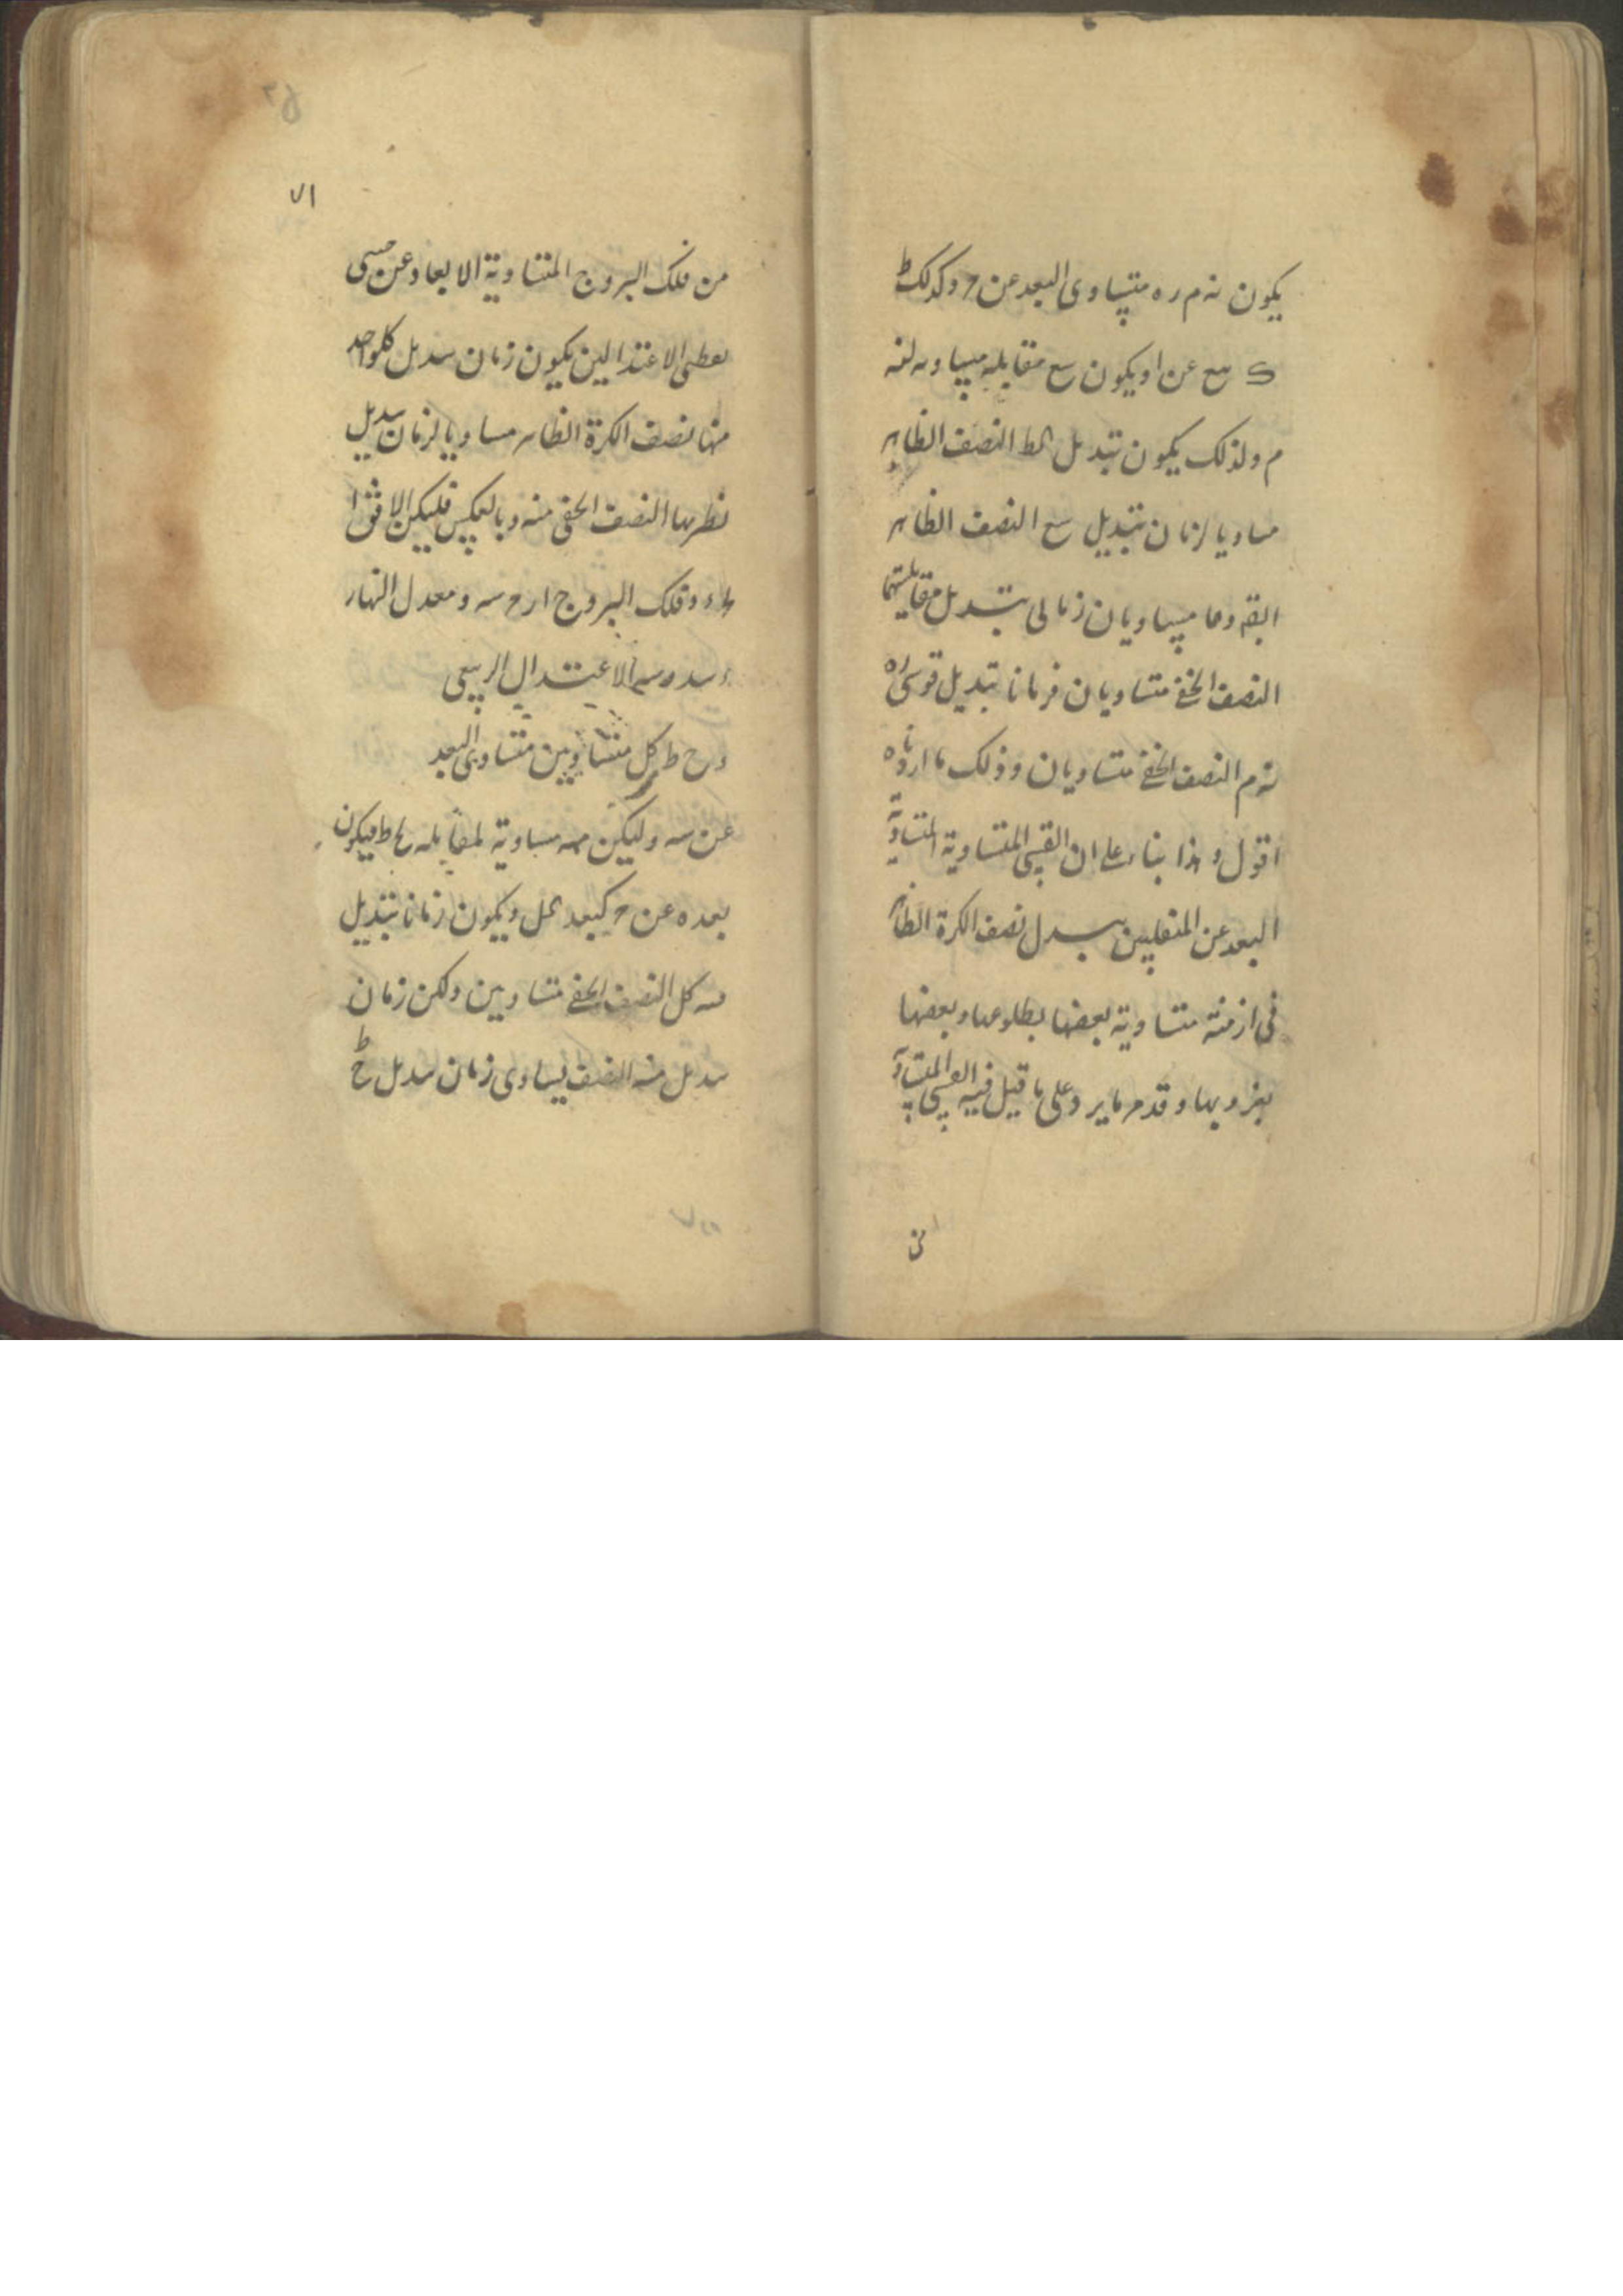 يكون نه م ر ه متساوى البعد عن ح وكذلك ط
ك سع عن ا ويكون سع مقابله مساويه لنه
م ولذلك يكون تبديل لط النصف الظاهر
مساويا لزمان تبديل سع النصف الظاهر
ايضا وهما مساويان زمانى تبديل مقابلتيهما
النصف الخفى متساويان فزمانا تبديل قوسى ره
نه م النصف الخفى متساويان وذلك ما اردناه
اقول وهذا بناء على ان القسى المتساوية المتساوية
البعد عن المنقلبين تبدل نصف الكرة الظاهر
فى ازمنة متساوية بعضها بطلوعها وبعضها
بغروبها وقد مر ما يرد على ما قيل فيه القسى المتساوية
من
٧١
من فلك البروج المتساوية الابعاد عن
نقطتى الاعتدالين يكون زمان تبديل كلواحد
منها نصف الكرة الظاهر مساويا لزمان تبديل
نظيرها النصف الخفى منه وبالعكس فليكن الافق ا
وفلك البروج ا ر ح سه ومعدل النهار
الاعتدال الربيعى
ر ح ط كل متساويين متساوى البعد
عن سه وليكن مساوية لمقابله ح ط فيكون
بعده عن ح كبعد كل ويكون زمانا تبديل
سه كل النصف الخفى متساويين ولكن زمان
تبديل منه النصف يساوى زمان تبديل ح ط